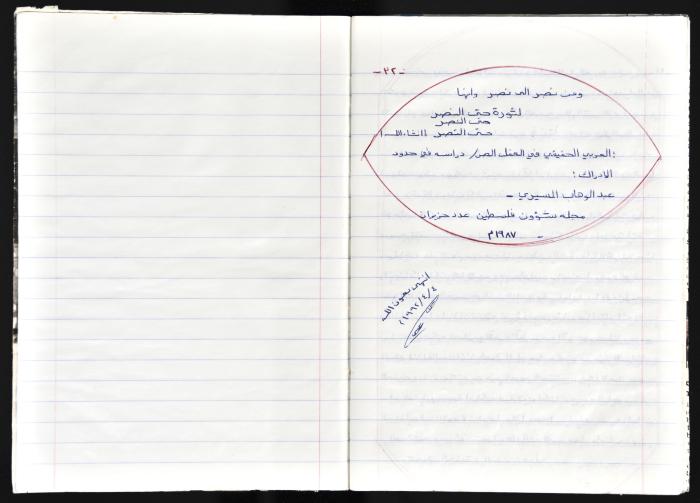 -٣٢-
ومن نصر الى نصر وانها
لثورة حتى النصر
حتى النصر
حتى النصر (انشاء الله)
: العربي الحقيقي في العقل الصهـ/ دراسه في حدود
الادراك :
عبد الوهاب المسيري -
مجله شؤون فلسطين عدد حزيران
- ١٩٨٧م
انتهى بعون الله
١٩٩٢/٤/٤